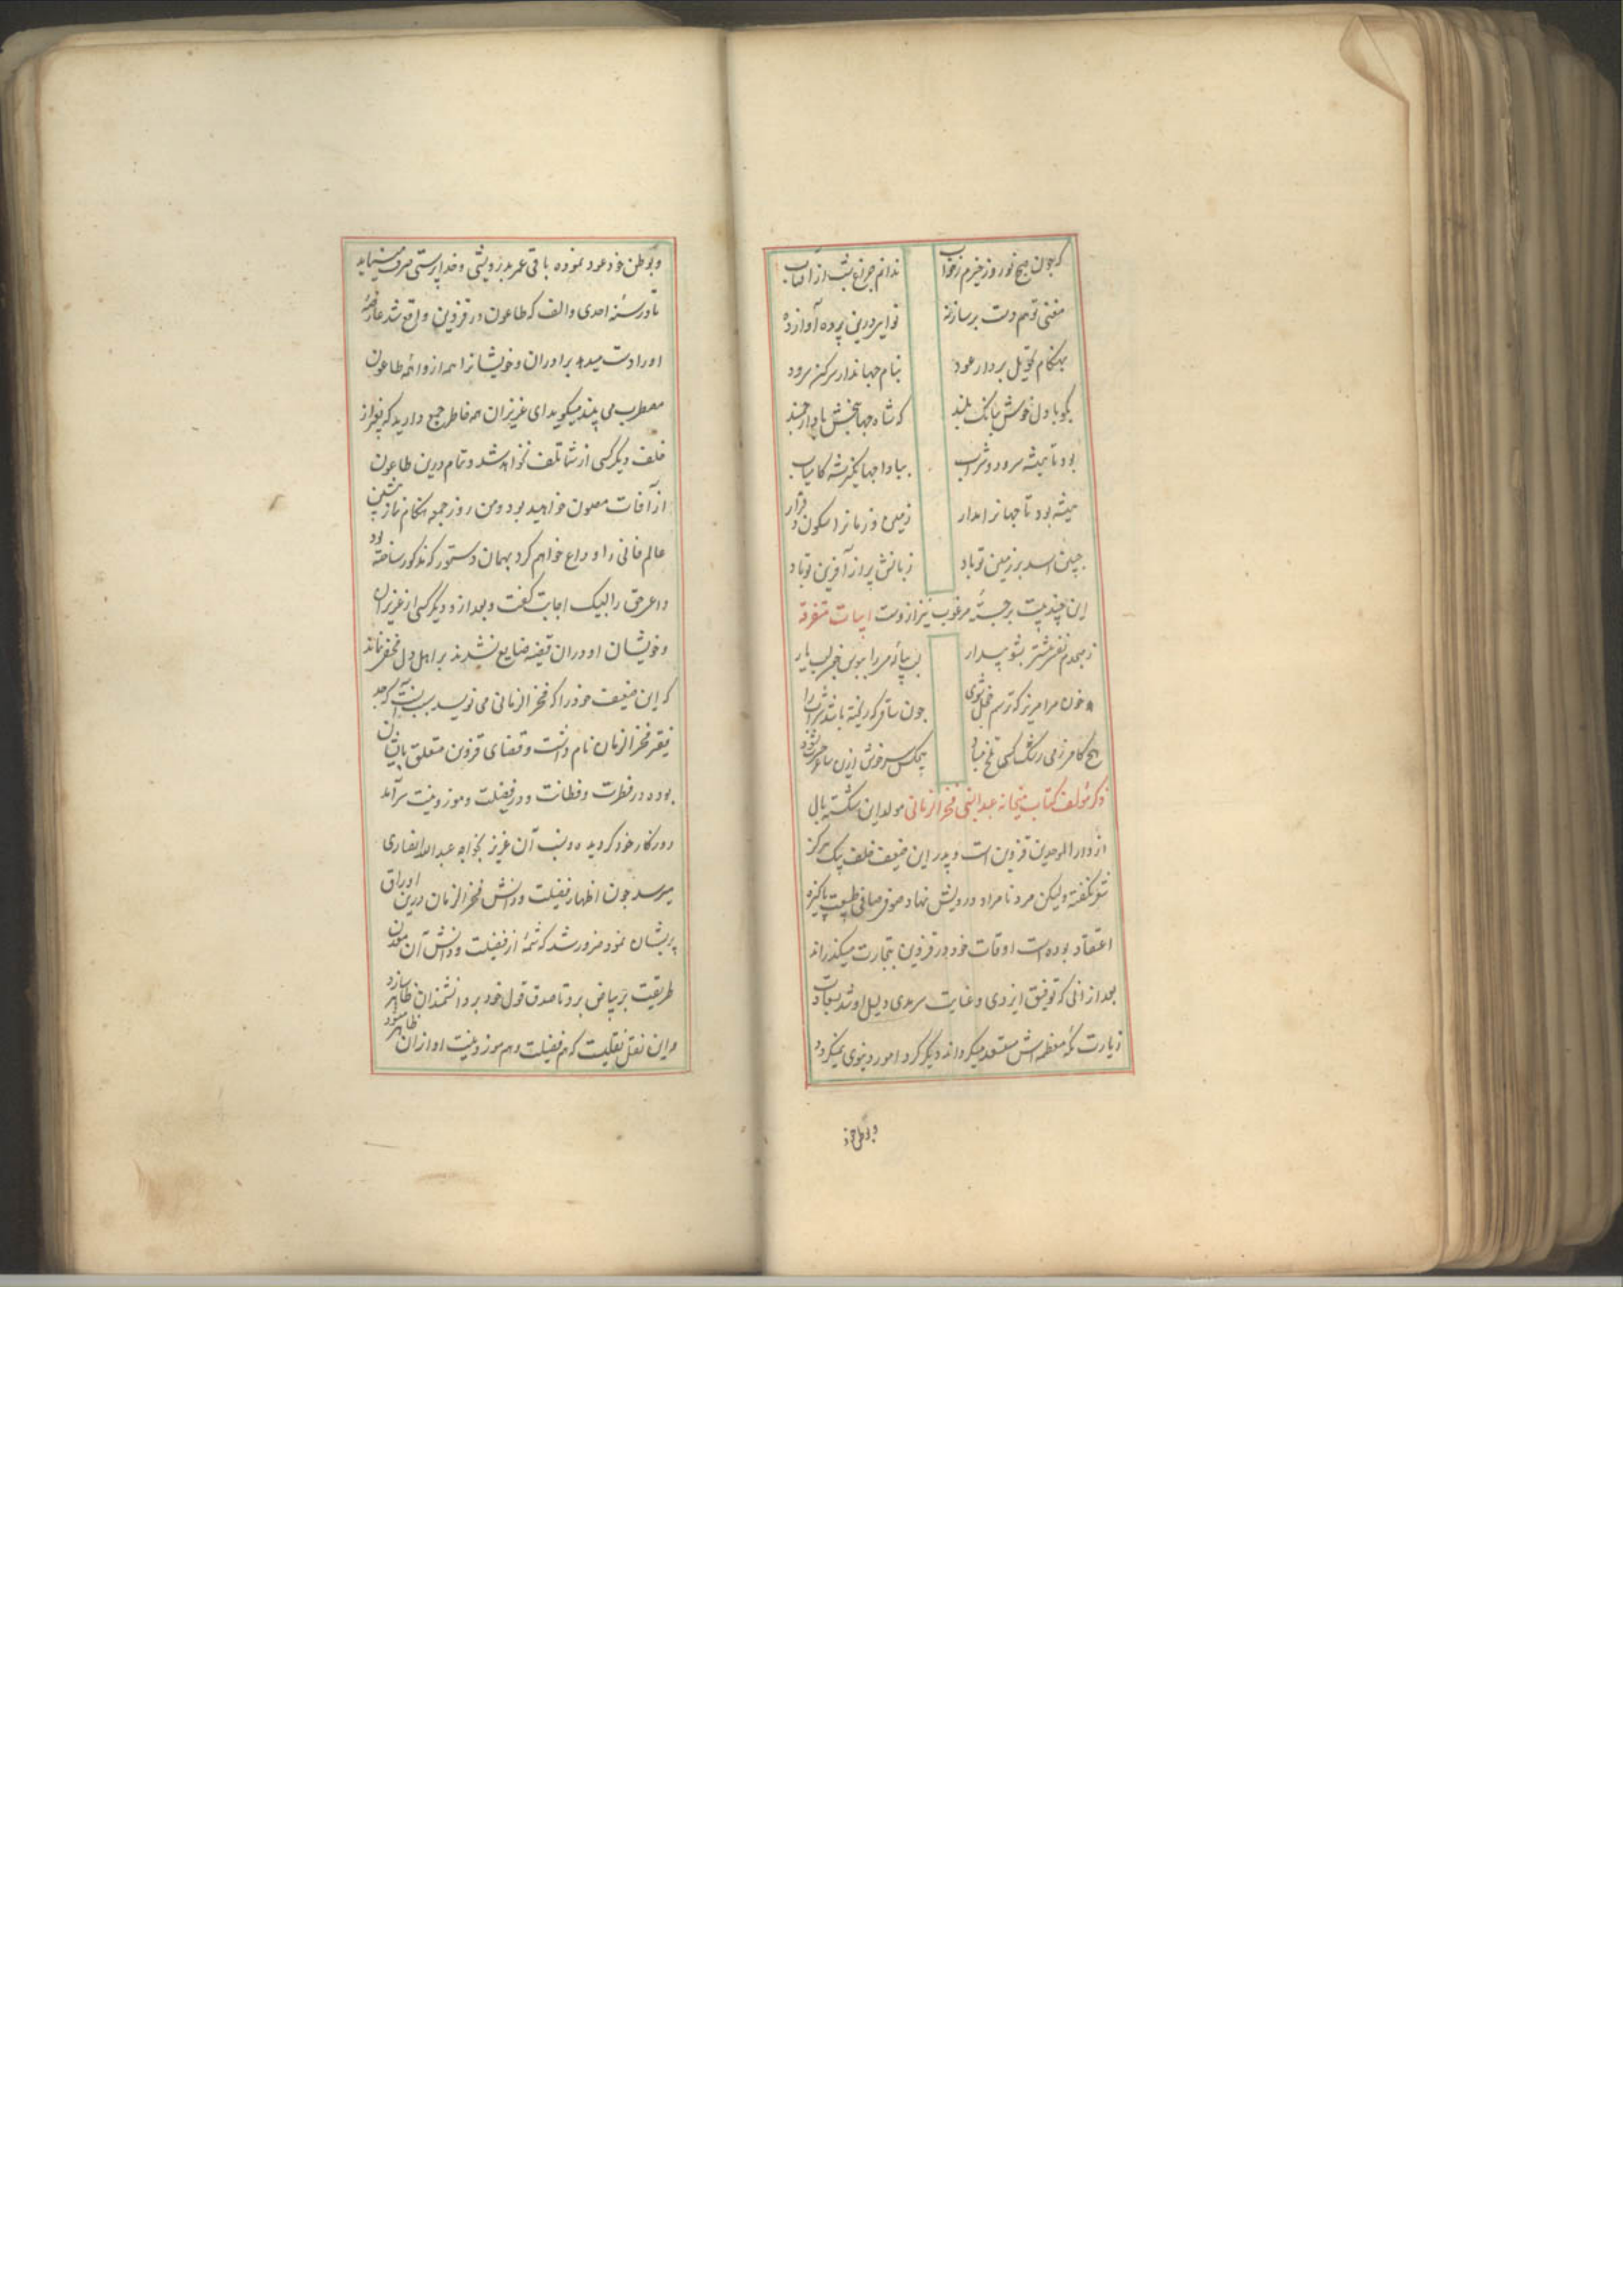 که چون صبح نوروز خیزم ز خواب ندانم چراغ شب از آفتاب
مغنی تو هم دست بر ساز نه نوایی درین پرده آواز ده
بهنگام تحویل بردار عود بنام جهاندار سر کن سرود
بگو با دل خوش ببانگ بلند که شاه جهابخش باد ارجمند
بود تا همیشه سرود و شراب بیادا جهانگیر شه کامیاب
همیشه بود تا جهانرا مدار زمین و زمانرا سکون و قرار
چنین اسد بر زمین تو باد زبانش پر از آفرین تو باد
این چند بیت برجسته مرغوب نیز ازوست ابیات متفرقه
لب پیاله می را ببوس خبر لب یار
خون مرا مریز که ترسم خجل شوی چون ساقی که ریخته باشد شراب را
هیچ کام می رنگ کسی تلخ مباد هیچکس سرخوش ازین
ذکر مؤلف کتاب میخانه عبدالنبی فخرالزمانی مولد این شکسته بال
از دار الموحدین قزوین است و پدر این ضعیف خلف بیک هرگز
شعر نگفته ولیکن مرد نامراد درویش نهاد صوفی صافی طبیعت پاکیزه
اعتقاد بوده است اوقات خود در قزوین بتجارت میگذراند
بعد از آنی که توفیق ایزدی و عنایت سرمدی دلیل او شد بسعادت
زیارت مکه معظمه اش مستسعد میگرداند دیگر گرد امور دنیوی نمیگردد
و بوطن خود
و بوطن خود عود نموده باقی عمر بدرویشی و خداپرستی صرف مینماید
تا در سنه احدی و الف که طاعون در قزوین واقع شد عارضه
او را دست میدهد برادران و خویشانرا همه از واهمه طاعون
مضطرب می بیند میگوید ای عزیزان همه خاطر جمع دارید که بغیر از
خلف دیگر کسی از شما تلف نخواهد شد و تمام درین طاعون
از آفات مصون خواهید بود و من روز جمعه هنگام نماز پیشین
عالم فانی را وداع خواهم کرد بهمان دستور که مذکور ساخته بود
داعی حق را لبیک اجابت گفت و بعد ازو دیگر کسی از عزیزان
و خویشان او در آن قضیه ضایع نشدند بر اهل دل مخفی نماند
که این ضعیف خود را که فخر الزمانی می نویسد سبب آنست که جد
فقیر فخر الزمان نام داشت و قضای قزوین متعلق بایشان
بوده در فطرت و فطانت و در فضیلت و موزونیت سرآمد
روزگار خود گردیده و نسب آن عزیز بخواجه عبدالله انصاری
میرسد چون اظهار فضیلت و دانش فخر الزمان درین اوراق
پریشان نمود ضرور شد که شمه از فضیلت و دانش آن معدن
طریقت بر بیاض برد تا صدق قول خود بر دانشمندان ظاهر سازد
و این نقل نقلیست که هم فضیلت و هم موزونیت او از آن ظاهر میشود